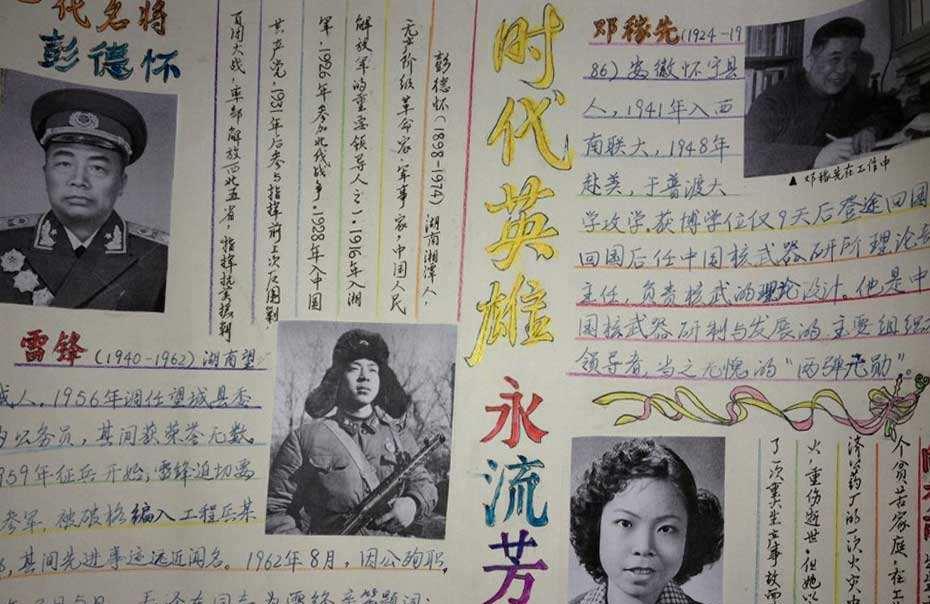 代名将
彭德怀
彭德怀(1898-1974)湖南湘潭人.
无产阶级革命家、军事家.中国人民
解放军的重要领导人之一.1916年入湘
军.1926年参加北伐战争.1928年入中国
共产党.1931年后参与指挥前三次反围剿.
百团大战.率部解放西北五省,指挥抗美援朝
雷锋(1940-1962)湖南望
成人,1956年调任望城县委
公务员,其间获荣誉无数
959年征兵开始,雷锋迫切要
参军,被破格编入工程兵某
其间先进事迹远近闻名。1962年8月,因公殉职,
月5日
时代英雄
永流芳
邓稼先(1924-19
86)安徽怀宁县
人,1941年入西
南联大,1948年
赴美,于普渡大
学攻学.获博学位仅9天后登途回国
回国后任中国核武器研所理论
主任,负责核武的理论设计。他是中
国核武器研制与发展的主要组织
领导者,当之无愧的“两弹元勋”。
▲邓稼先在工作中
个贫苦家庭,在工
济药厂的一次火灾中
火,重伤逝世.但她以
了一次重大生产事故而